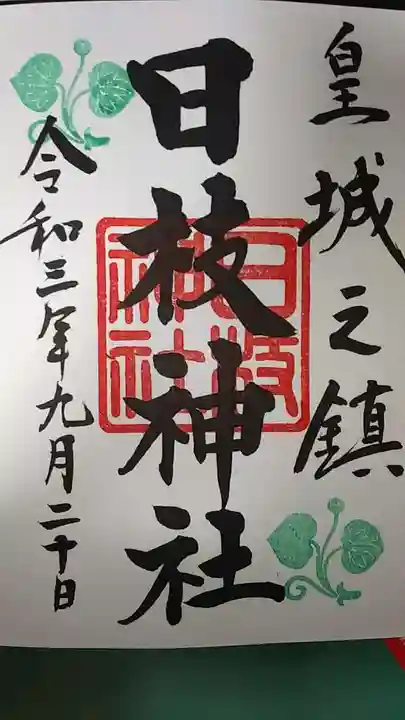 皇城之鎮
日枝神社
日枝
神社
令和三年九月二十日